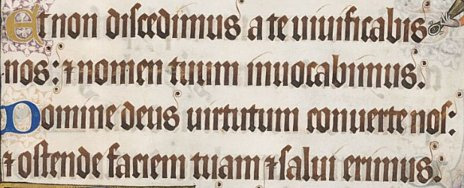 Et non discedimus a te uiuificabis
nos: ⁊ nomen tuum inuocabimus.
Domine deus uirtutum conuerte nos:
⁊ ostende faciem tuam ⁊ salui erimus.